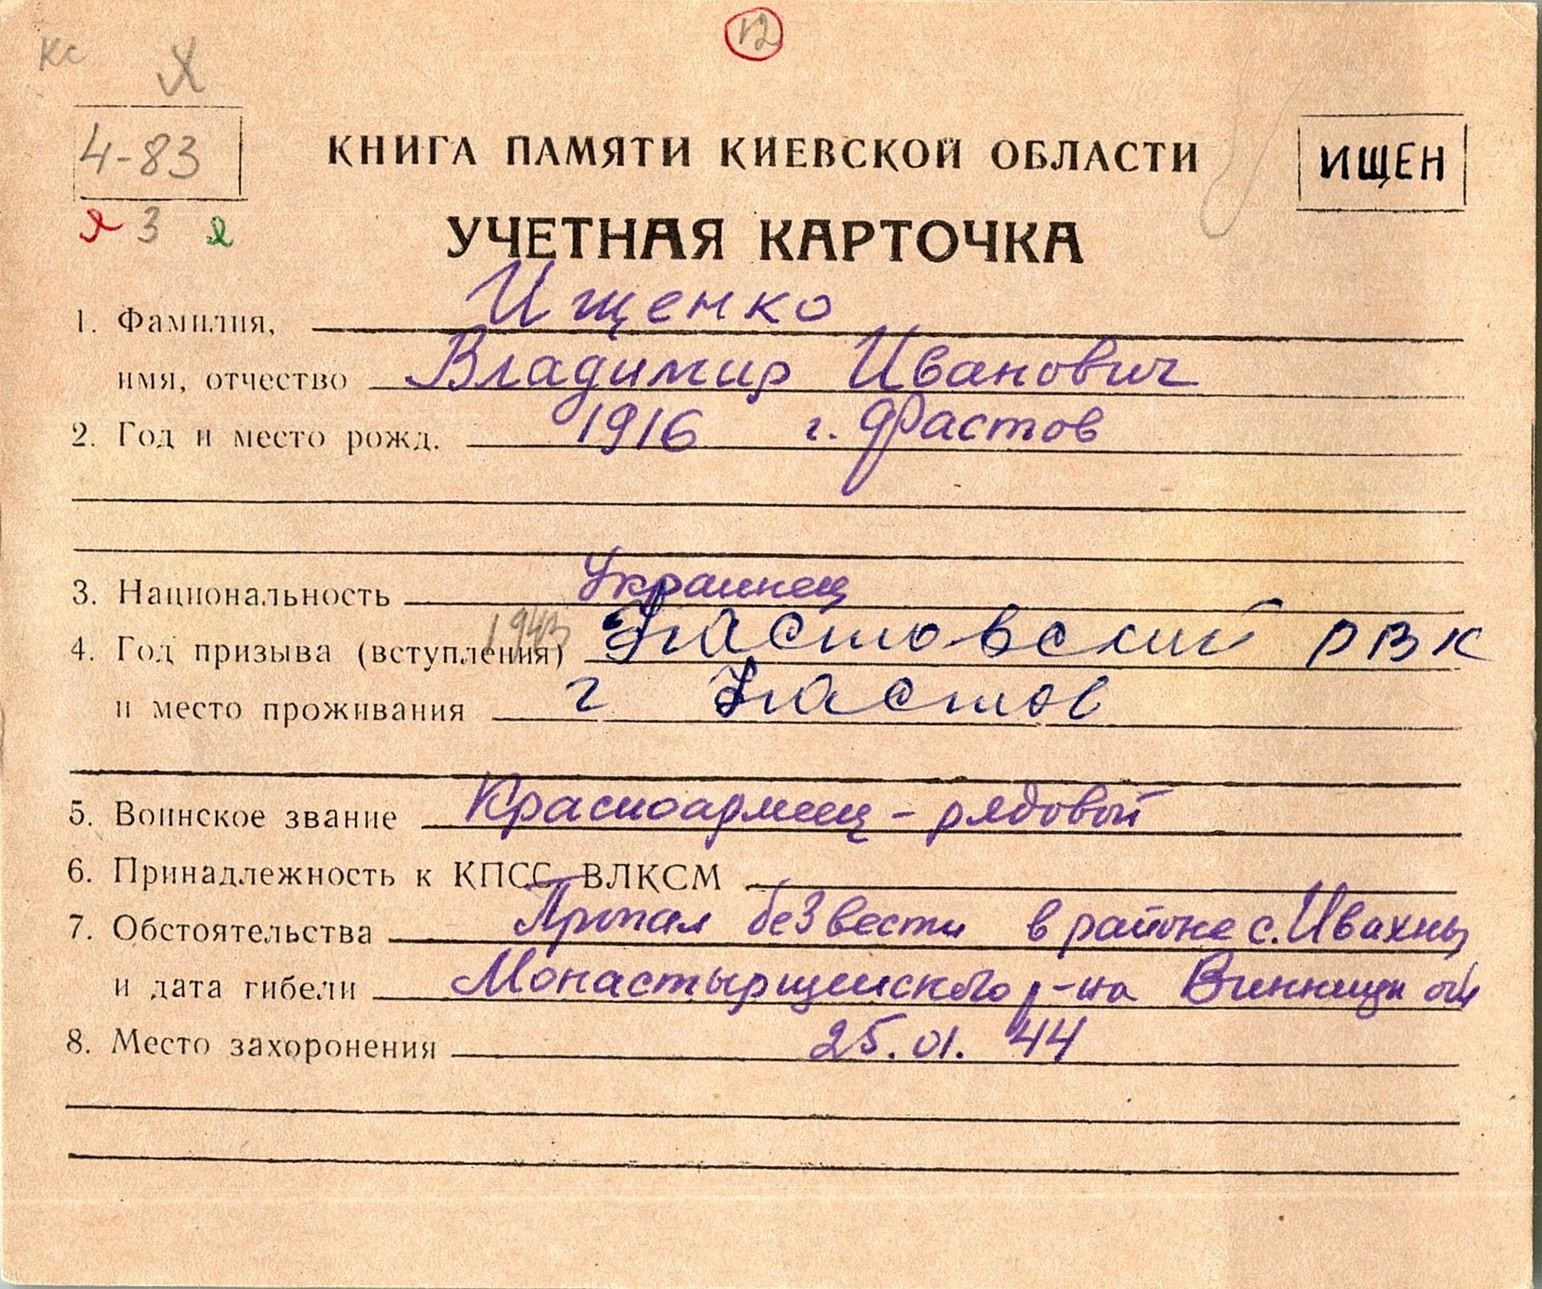 Кс
12
4-83
3
КНИГА ПАМЯТИ КИЕВСКОЙ ОБЛАСТИ
ИЩЕН
УЧЕТНАЯ КАРТОЧКА
1. Фамилия, Ищенко
имя, отчество Владимир Иванович
2. Год и место рожд. 1916 г. Фастов
3. Национальность Украинец
4. Год призыва (вступления) 1943 Фастовский РВК
и место проживания г Фастов
5. Воинское звание Красноармеец - рядовой
6. Принадлежность к КПСС, ВЛКСМ
7. Обстоятельства Пропал без вести в районе с. Ивахны
и дата гибели Монастырщенского р-на Винницк обл
8. Место захоронения 25.01.44